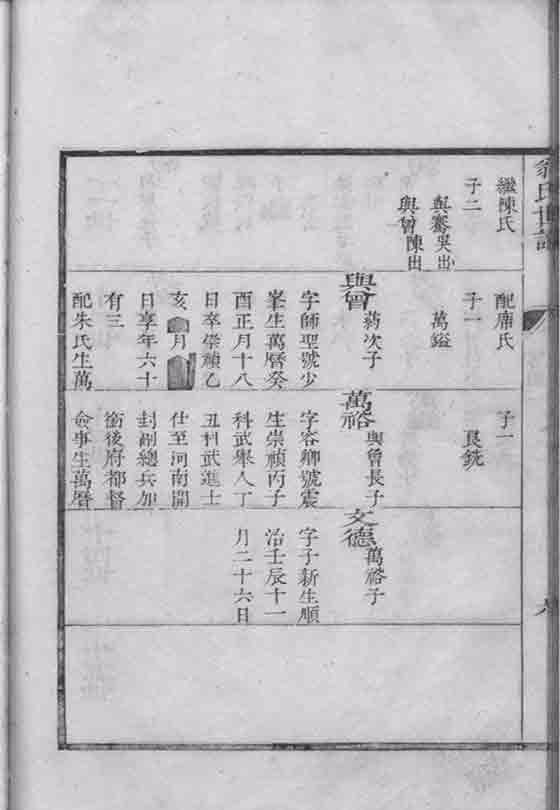 翁氏世譜
繼陳氏
子二
與騫吳出
與曾陳出
配席氏
子一
萬鎰
與曾
次子
字師聖號少
峯生萬曆癸
酉正月十八
日卒崇禎乙
亥月
日享年六十
有三
配朱氏生萬
子一
良銑
萬裕
與曾長子
字容卿號震
生崇禎丙子
科武舉人丁
丑科武進士
仕至河南開
封副總兵加
銜後府都督
僉事生萬曆
文德
萬裕子
字子新生順
治壬辰十一
月二十六日